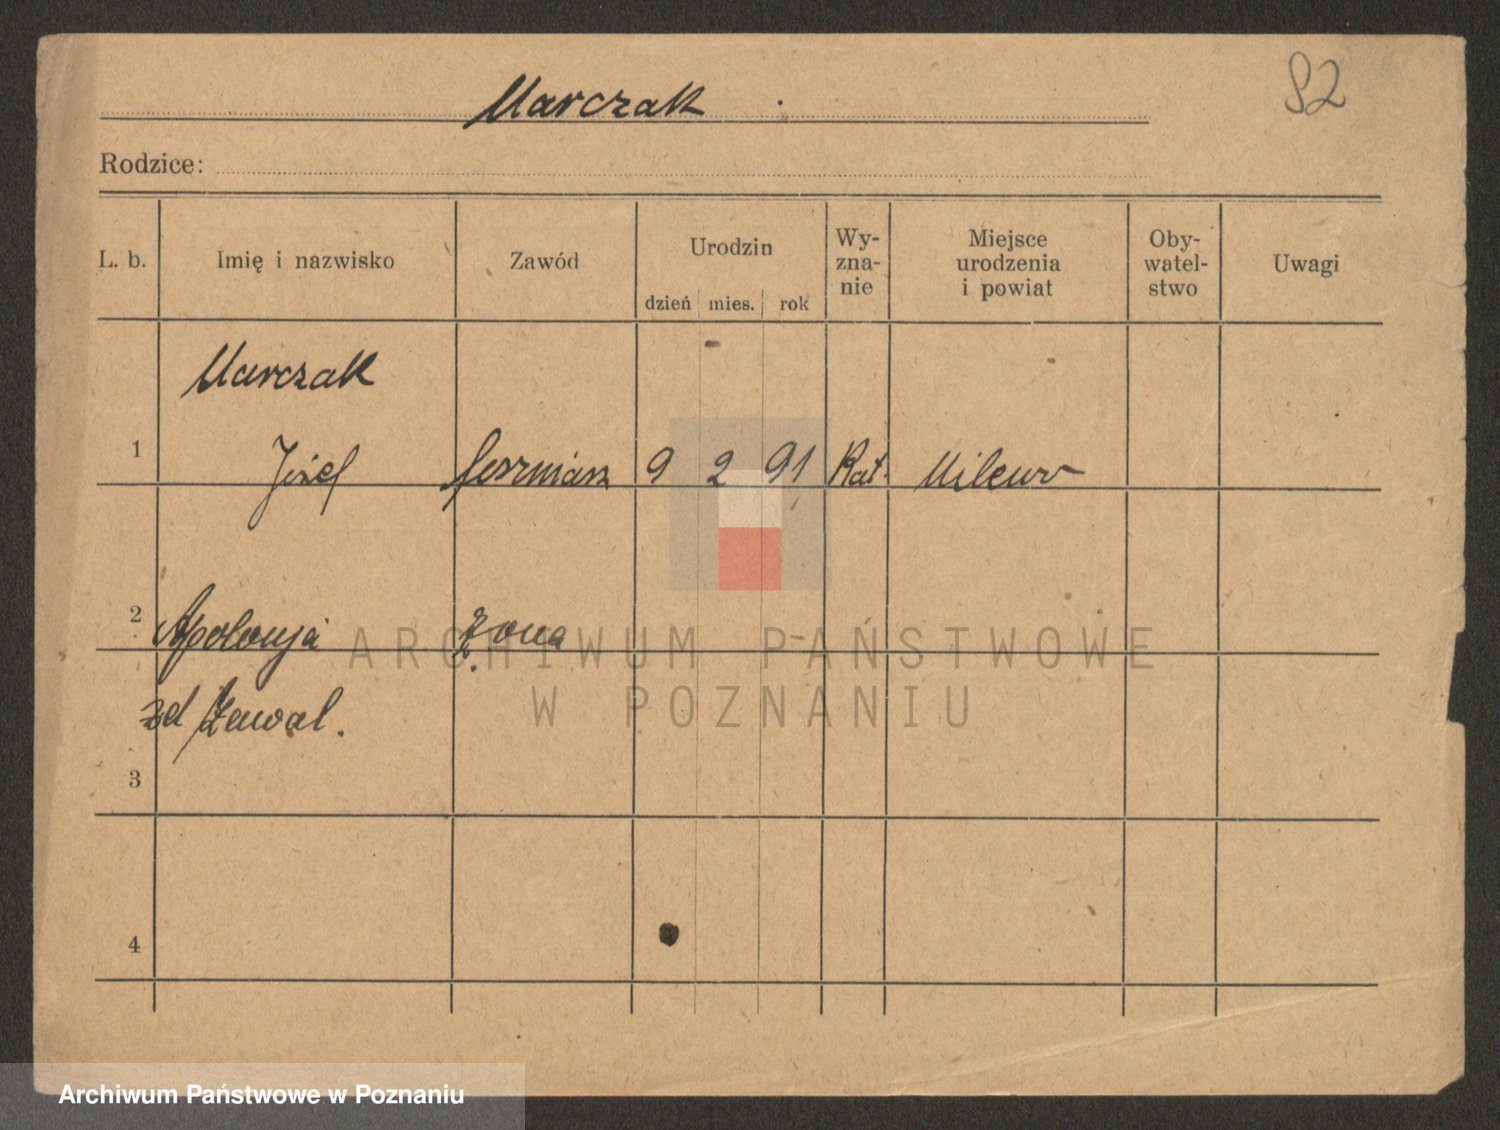 82
Marczak
Rodzice:
L. b.
Imię i nazwisko
Zawód
Urodzin
dzień
mies.
rok
Wy-
zna-
nie
Miejsce
urodzenia
i powiat
Oby-
watel-
stwo
Uwagi
Marczak
1 Józef 9 2 91 Kat.
2 Apolonja żona
3
4
ARCHIWUM PAŃSTWOWE
W POZNANIU
Archiwum Państwowe w Poznaniu